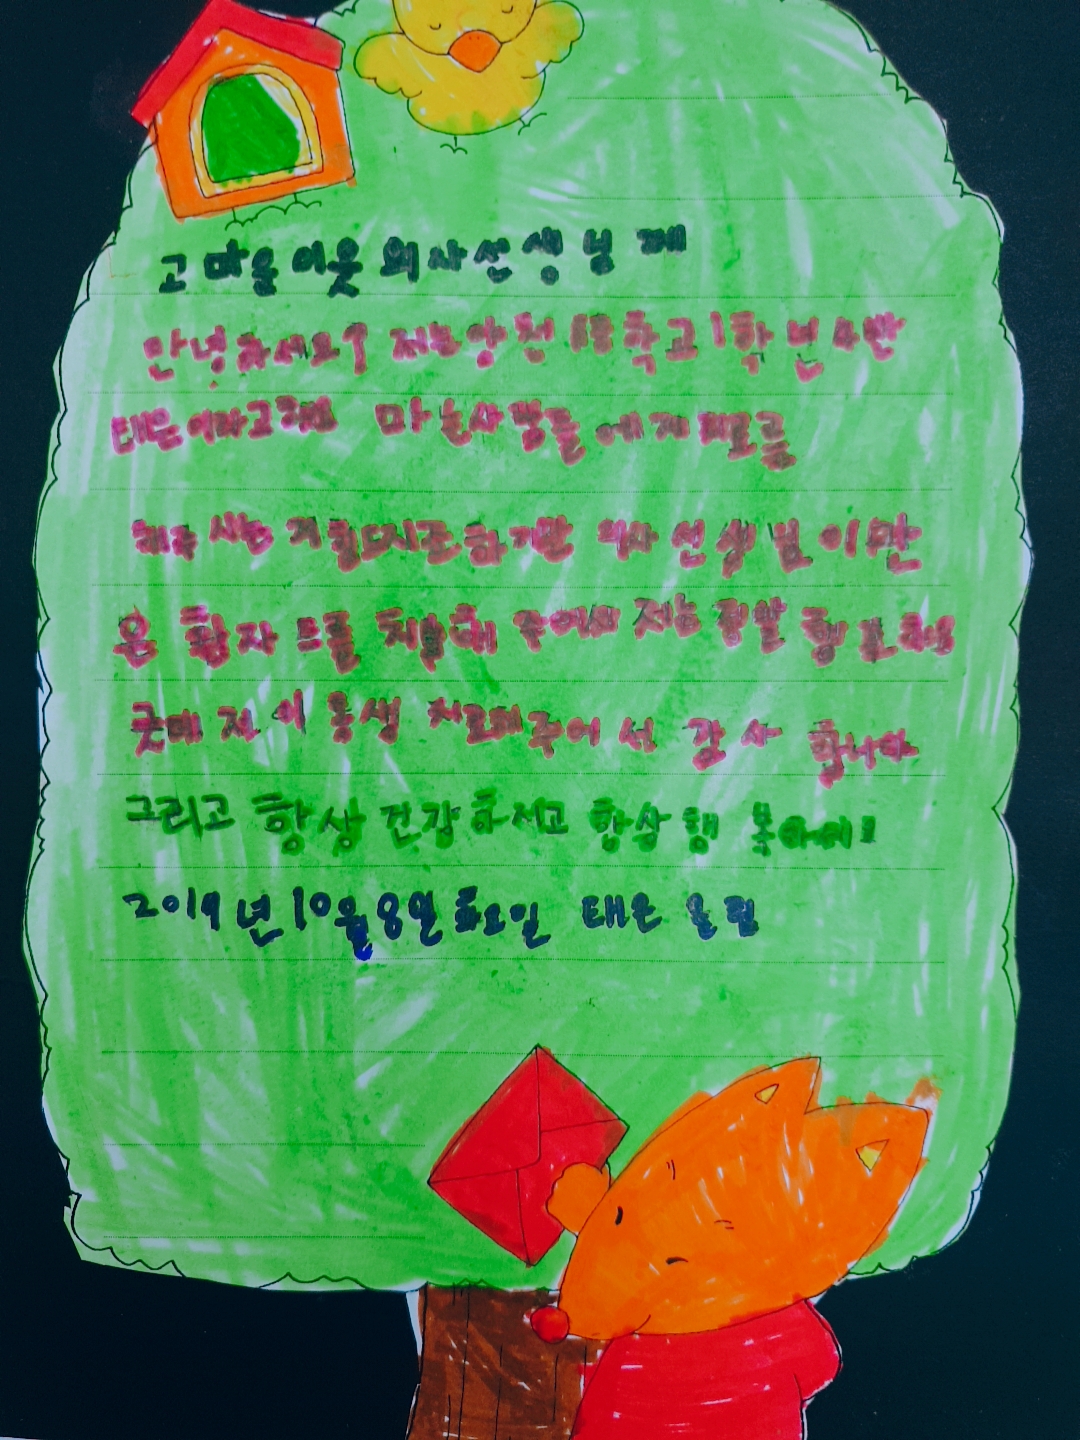 고마운 이웃 의사 선생님께
안녕하세요? 저는 양천 학교 1학년 4반
태은이라고해요 마는사람들에게 치료를
해주시는 지 힘드시조 하지만 의사 선생님이 만
은 환자드를 치료해 주어서 저는 정말 행보캐요
긋때 전 이 동생 치료해주어서 감사 합니다
그리고 항상 건강하시고 항상 행복하세요
2019년 10월 8일 화요일 태은 올림